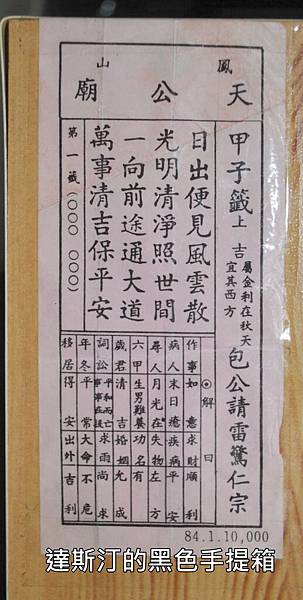 鳳山
天公廟
甲子籤上吉
屬金利在秋天
宜其西方
包公請雷驚仁宗
日出便見風雲散
光明清淨照世間
一向前途通大道
萬事清吉保平安
第一籤(○○○ ○○○)
⊙解曰
作事如意 求財順利
病人末日癒 疾病平安
尋人月光在 失物左方
六甲生男難養 功名有
歲君清吉 婚姻允成
詞訟平和 求雨尚求
年冬平常 大命不危
移居得安 出外吉利
84.1.10,000
達斯汀的黑色手提箱